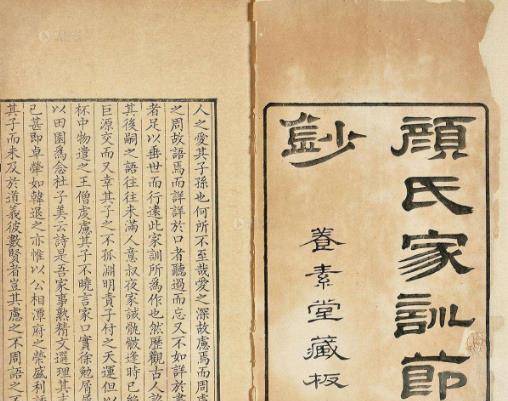 顔氏家訓節
鈔
養素堂藏板
人之愛其子孫也何所不至哉愛之深故慮焉而周
之周故語焉而詳詳於口者聽過而忘又不如詳於
者足以垂世而行遠此家訓所為作也然歷觀古人
其後嗣之語往往未滿人意叔夜家誡骫骳逢時已
巨源交而又幸其子之不孤淵明責子付之天運但以
杯中物遣之王僧虔慮其子不曉言家口實徐勉屑
以田園為念杜子美云詩是吾家事熟精文選理其
已甚即卓犖如韓退之亦惟以公相潭府之榮盛利
其子而未及於道義彼數賢者豈其慮之不周語之